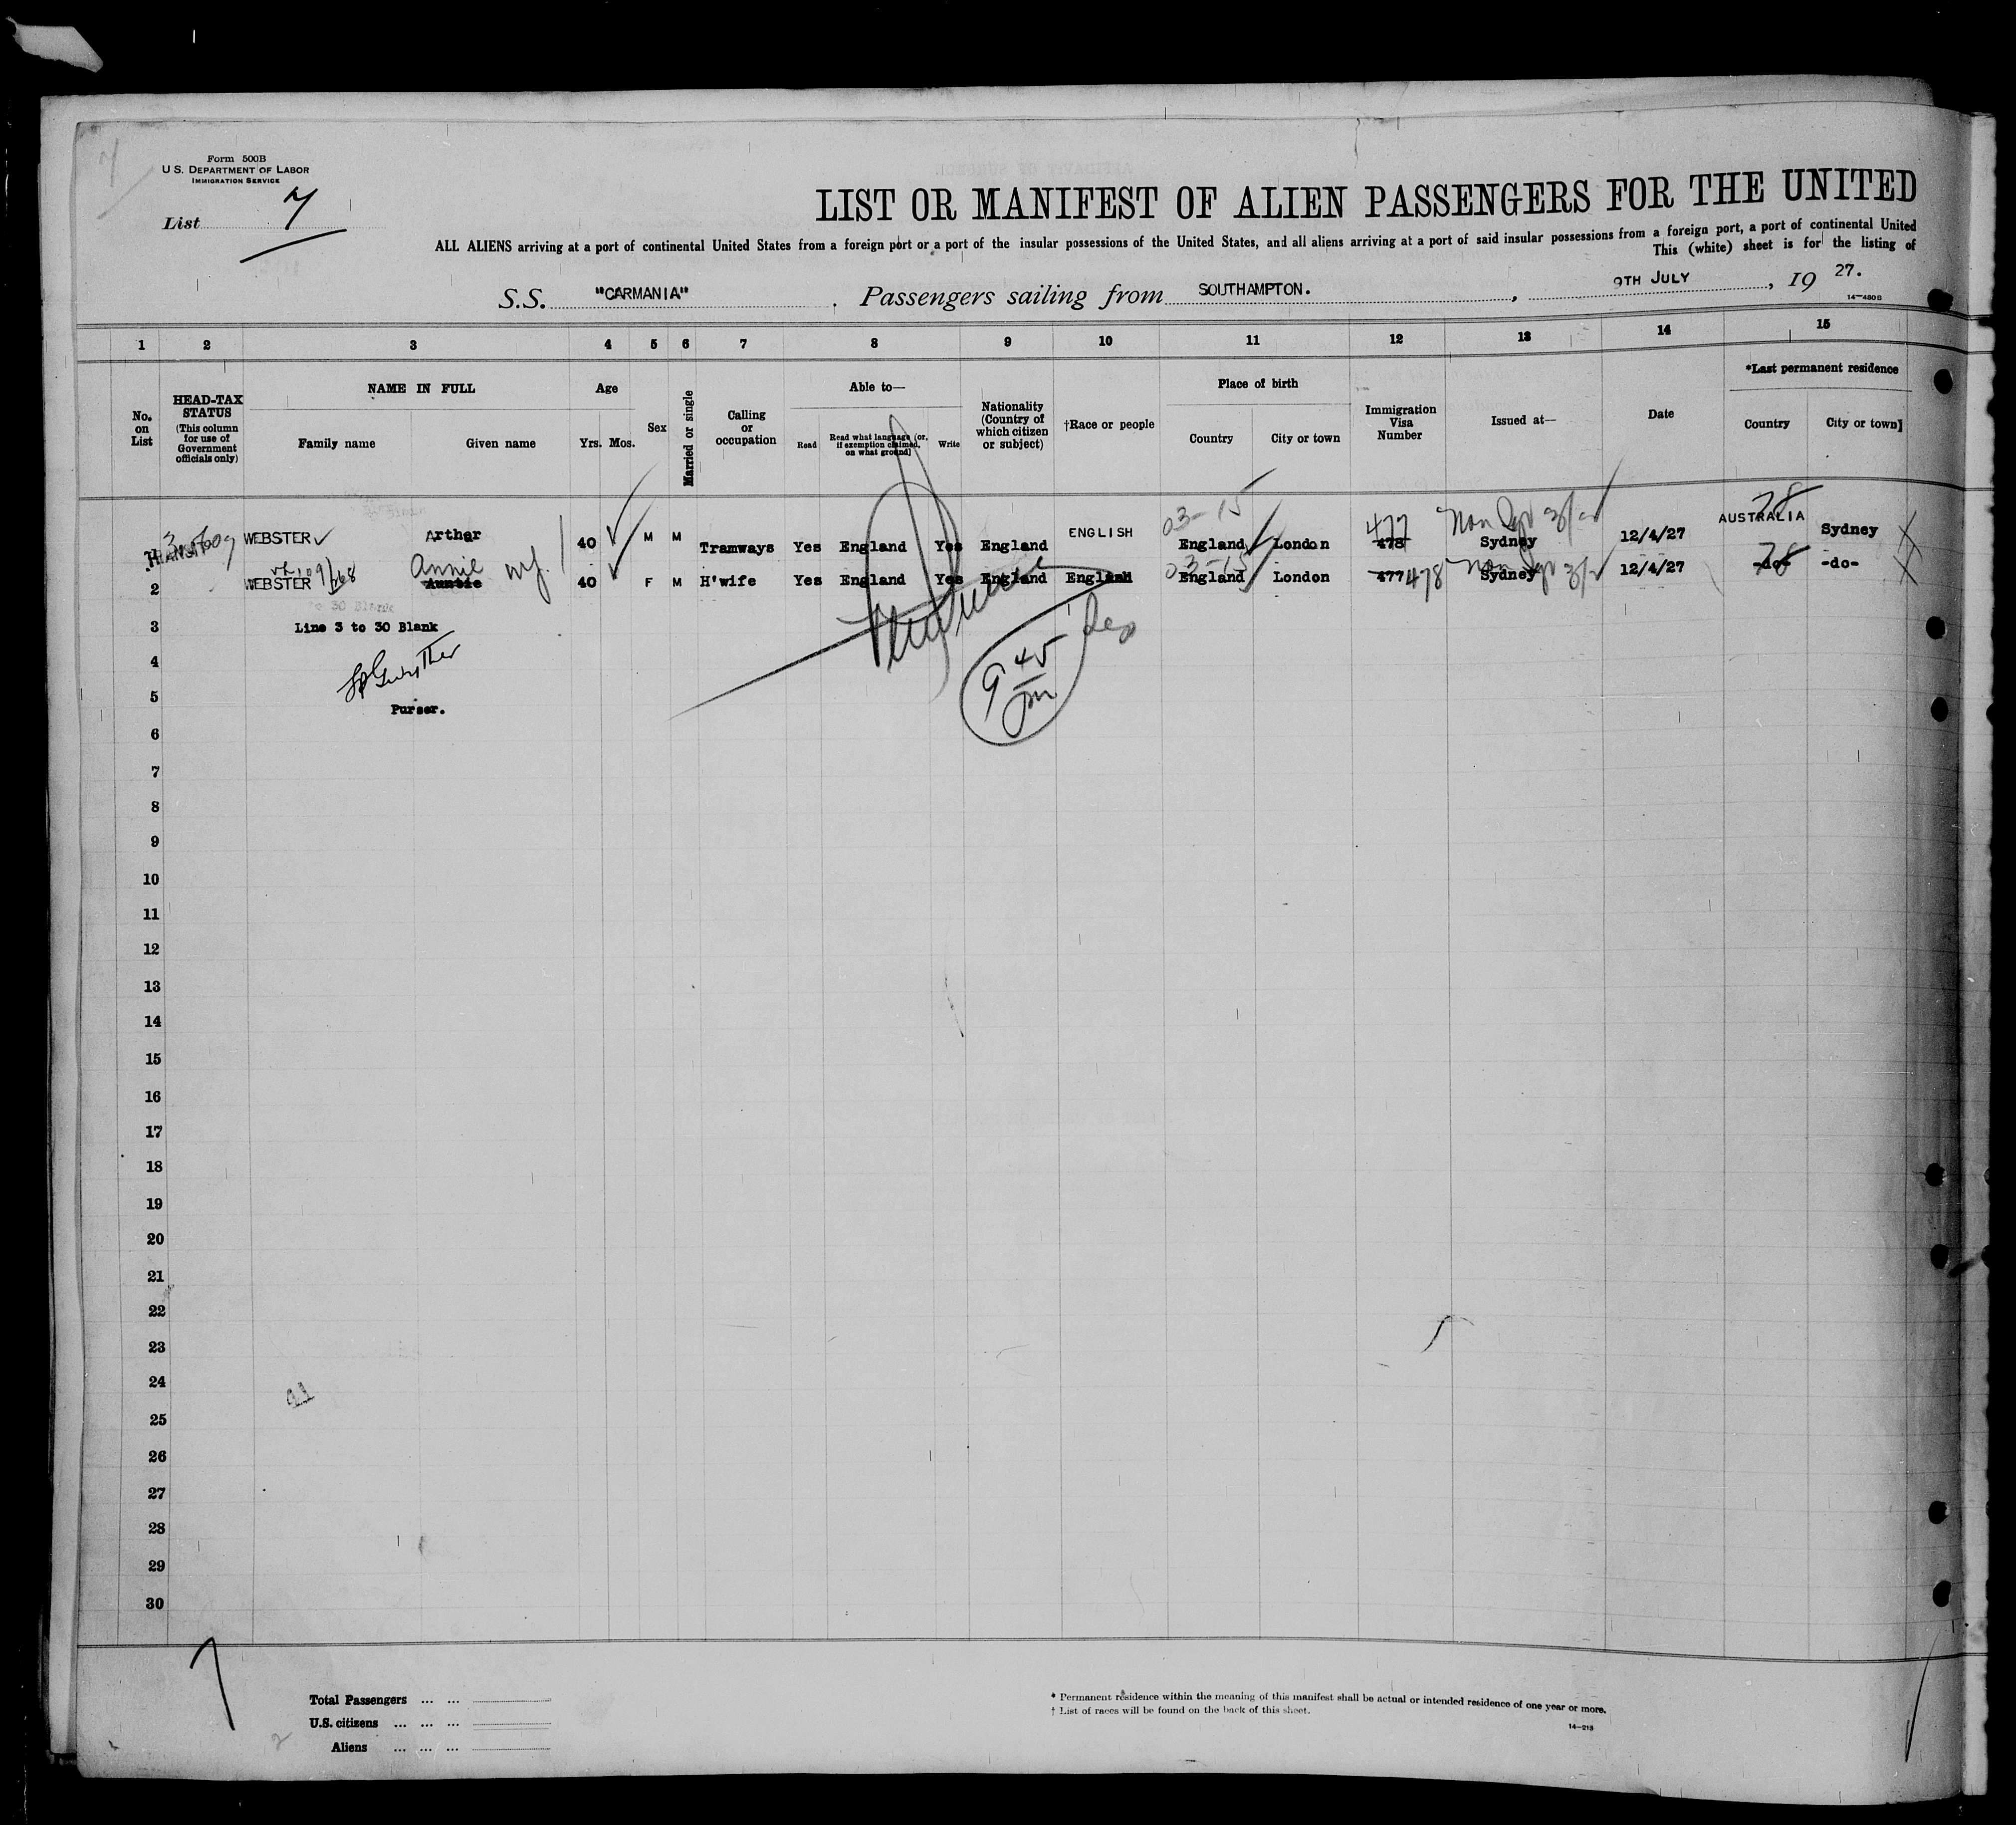 Form 500B
U.S. DEPARTMENT OF LABOR
IMMIGRATION SERVICE
List 7
LIST OR MANIFEST OF ALIEN PASSENGERS FOR THE UNITED
ALL ALIENS arriving at a port of continental United States from a foreign port or a port of the insular possessions of the United States, and all aliens arriving at a port of said insular possessions from a foreign port, a port of continental United
This (white) sheet is for the listing of
S.S. "CARMANIA" . Passengers sailing from SOUTHAMPTON. , 9TH JULY , 19 27.
14-480B
1 2 3 4 5 6 7 8 9 10 11 12 13 14 15
No. on List
HEAD-TAX STATUS (This column for use of Government officials only)
NAME IN FULL
Family name Given name
Age
Yrs. Mos.
Sex
Married or single
Calling or occupation
Able to—
Read
Read what language (or, if exemption claimed, on what ground)
Write
Nationality (Country of which citizen or subject)
†Race or people
Place of birth
Country City or town
Immigration Visa Number
Issued at—
Date
*Last permanent residence
Country City or town]
03-15 477 78
WEBSTER Arthar 40 M M Tramways Yes England Yes England ENGLISH England London 478 Sydney 12/4/27 AUSTRALIA Sydney
Annie 03-15 78
2 WEBSTER Auntie 40 F M H'wife Yes England Yes England England London 477 478 Sydney 12/4/27 -do- -do-
3 Line 3 to 30 Blank
4
5
Purser.
9 45
6
7
8
9
10
11
12
13
14
15
16
17
18
19
20
21
22
23
24
25
26
27
28
29
30
Total Passengers ... ...
U.S. citizens ... ... ...
Aliens ... ... ...
* Permanent residence within the meaning of this manifest shall be actual or intended residence of one year or more.
† List of races will be found on the back of this sheet.
14-218